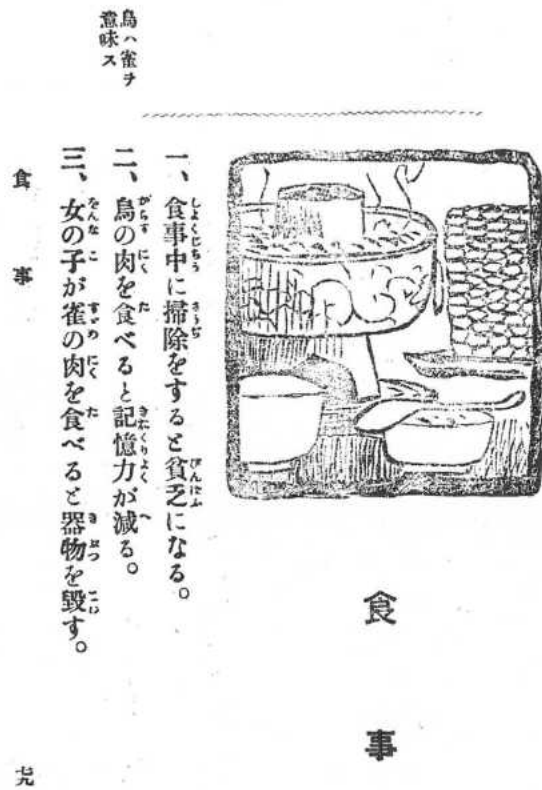 食事
一、食事中に掃除をすると貧乏になる。
二、烏の肉を食べると記憶力が減る。
三、女の子が雀の肉を食べると器物を毀す。
鳥ハ雀ヲ
意味ス
食事
七九